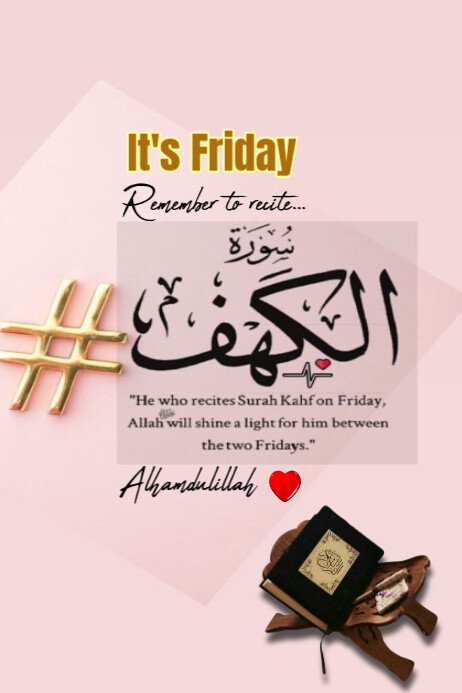 It's Friday
Remember to recite...
سُورَة
الكَهف
#
"He who recites Surah Kahf on Friday,
Allah ﷻ will shine a light for him between
the two Fridays."
Alhamdulillah